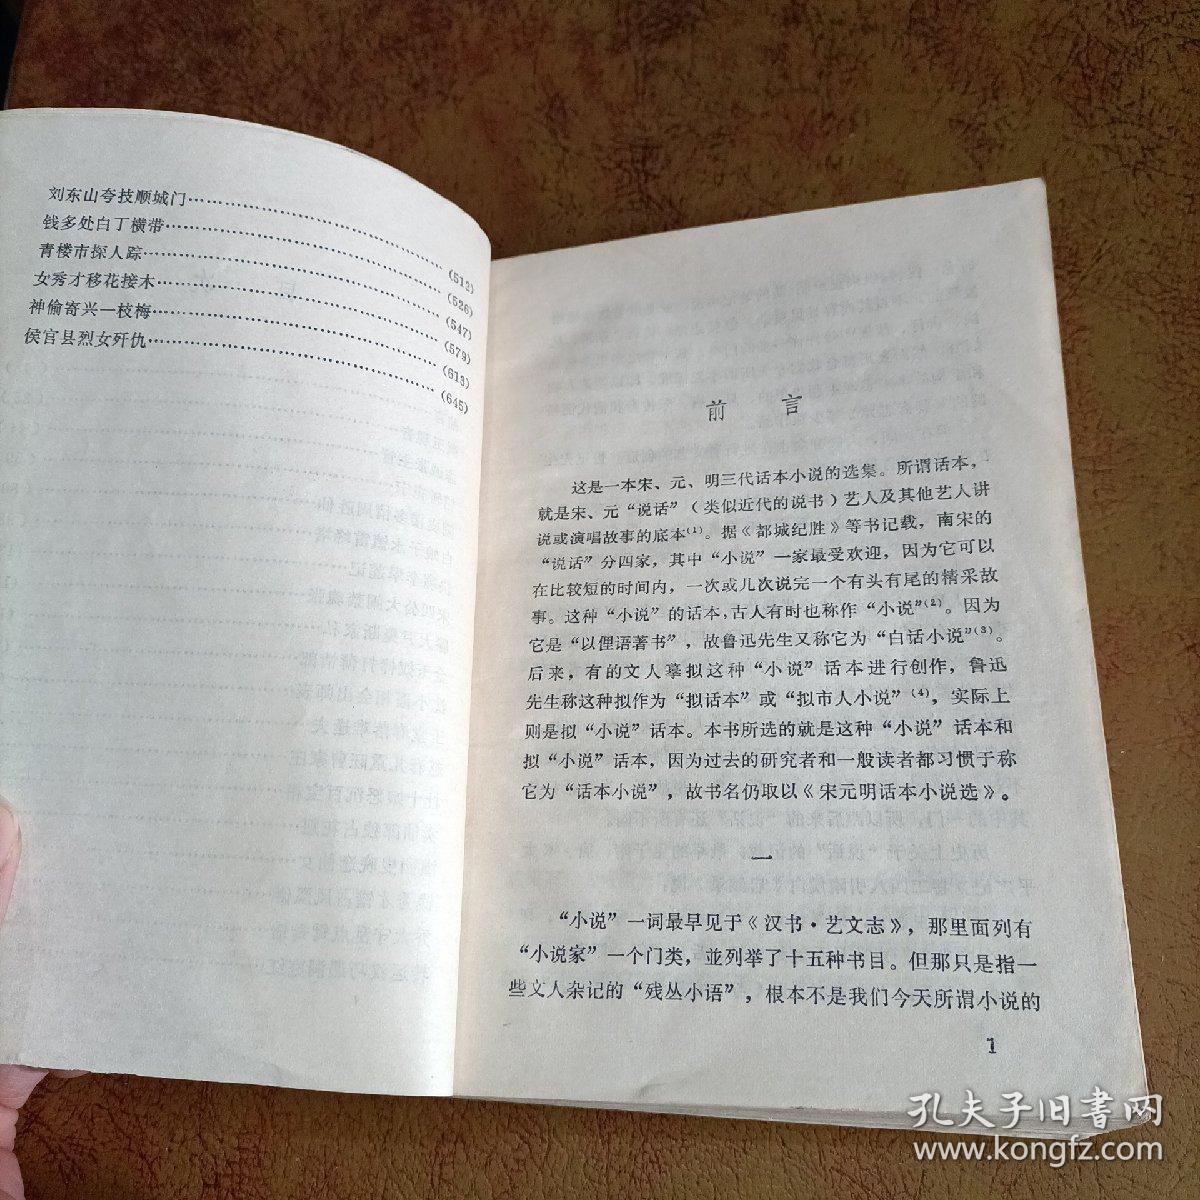 刘东山夸技顺城门……(512)
钱多处白丁横带……(526)
青楼市探人踪……(547)
女秀才移花接木……(579)
神偷寄兴一枝梅……(613)
侯官县烈女歼仇……(645)
前言
这是一本宋、元、明三代话本小说的选集。所谓话本，
就是宋、元“说话”（类似近代的说书）艺人及其他艺人讲
说或演唱故事的底本(1)。据《都城纪胜》等书记载，南宋的
“说话”分四家，其中“小说”一家最受欢迎，因为它可以
在比较短的时间内，一次或几次说完一个有头有尾的精采故
事。这种“小说”的话本，古人有时也称作“小说”(2)。因为
它是“以俚语著书”，故鲁迅先生又称它为“白话小说”(3)。
后来，有的文人摹拟这种“小说”话本进行创作，鲁迅
先生称这种拟作为“拟话本”或“拟市人小说”(4)，实际上
则是拟“小说”话本。本书所选的就是这种“小说”话本和
拟“小说”话本，因为过去的研究者和一般读者都习惯于称
它为“话本小说”，故书名仍取以《宋元明话本小说选》。
一
“小说”一词最早见于《汉书·艺文志》，那里面列有
“小说家”一个门类，並列举了十五种书目。但那只是指一
些文人杂记的“残丛小语”，根本不是我们今天所谓小说的
1
孔夫子旧书网
www.kongfz.com